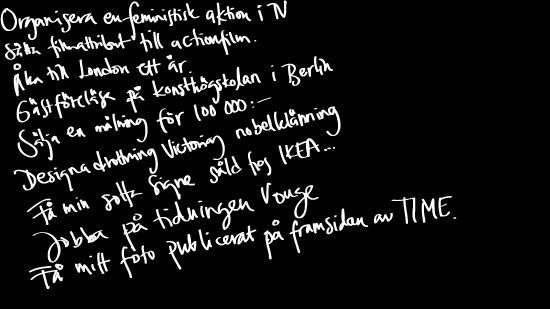 Organisera en feministisk aktion i TV
Sälja filmattribut till actionfilm.
Åka till London ett år
Gästföreläsa på konsthögskolan i Berlin
Sälja en målning för 100 000:-
Designa drottning Victorias nobelklänning
Få min soffa Signe såld hos IKEA...
Jobba på tidningen Vouge
Få mitt foto publicerat på framsidan av TIME.